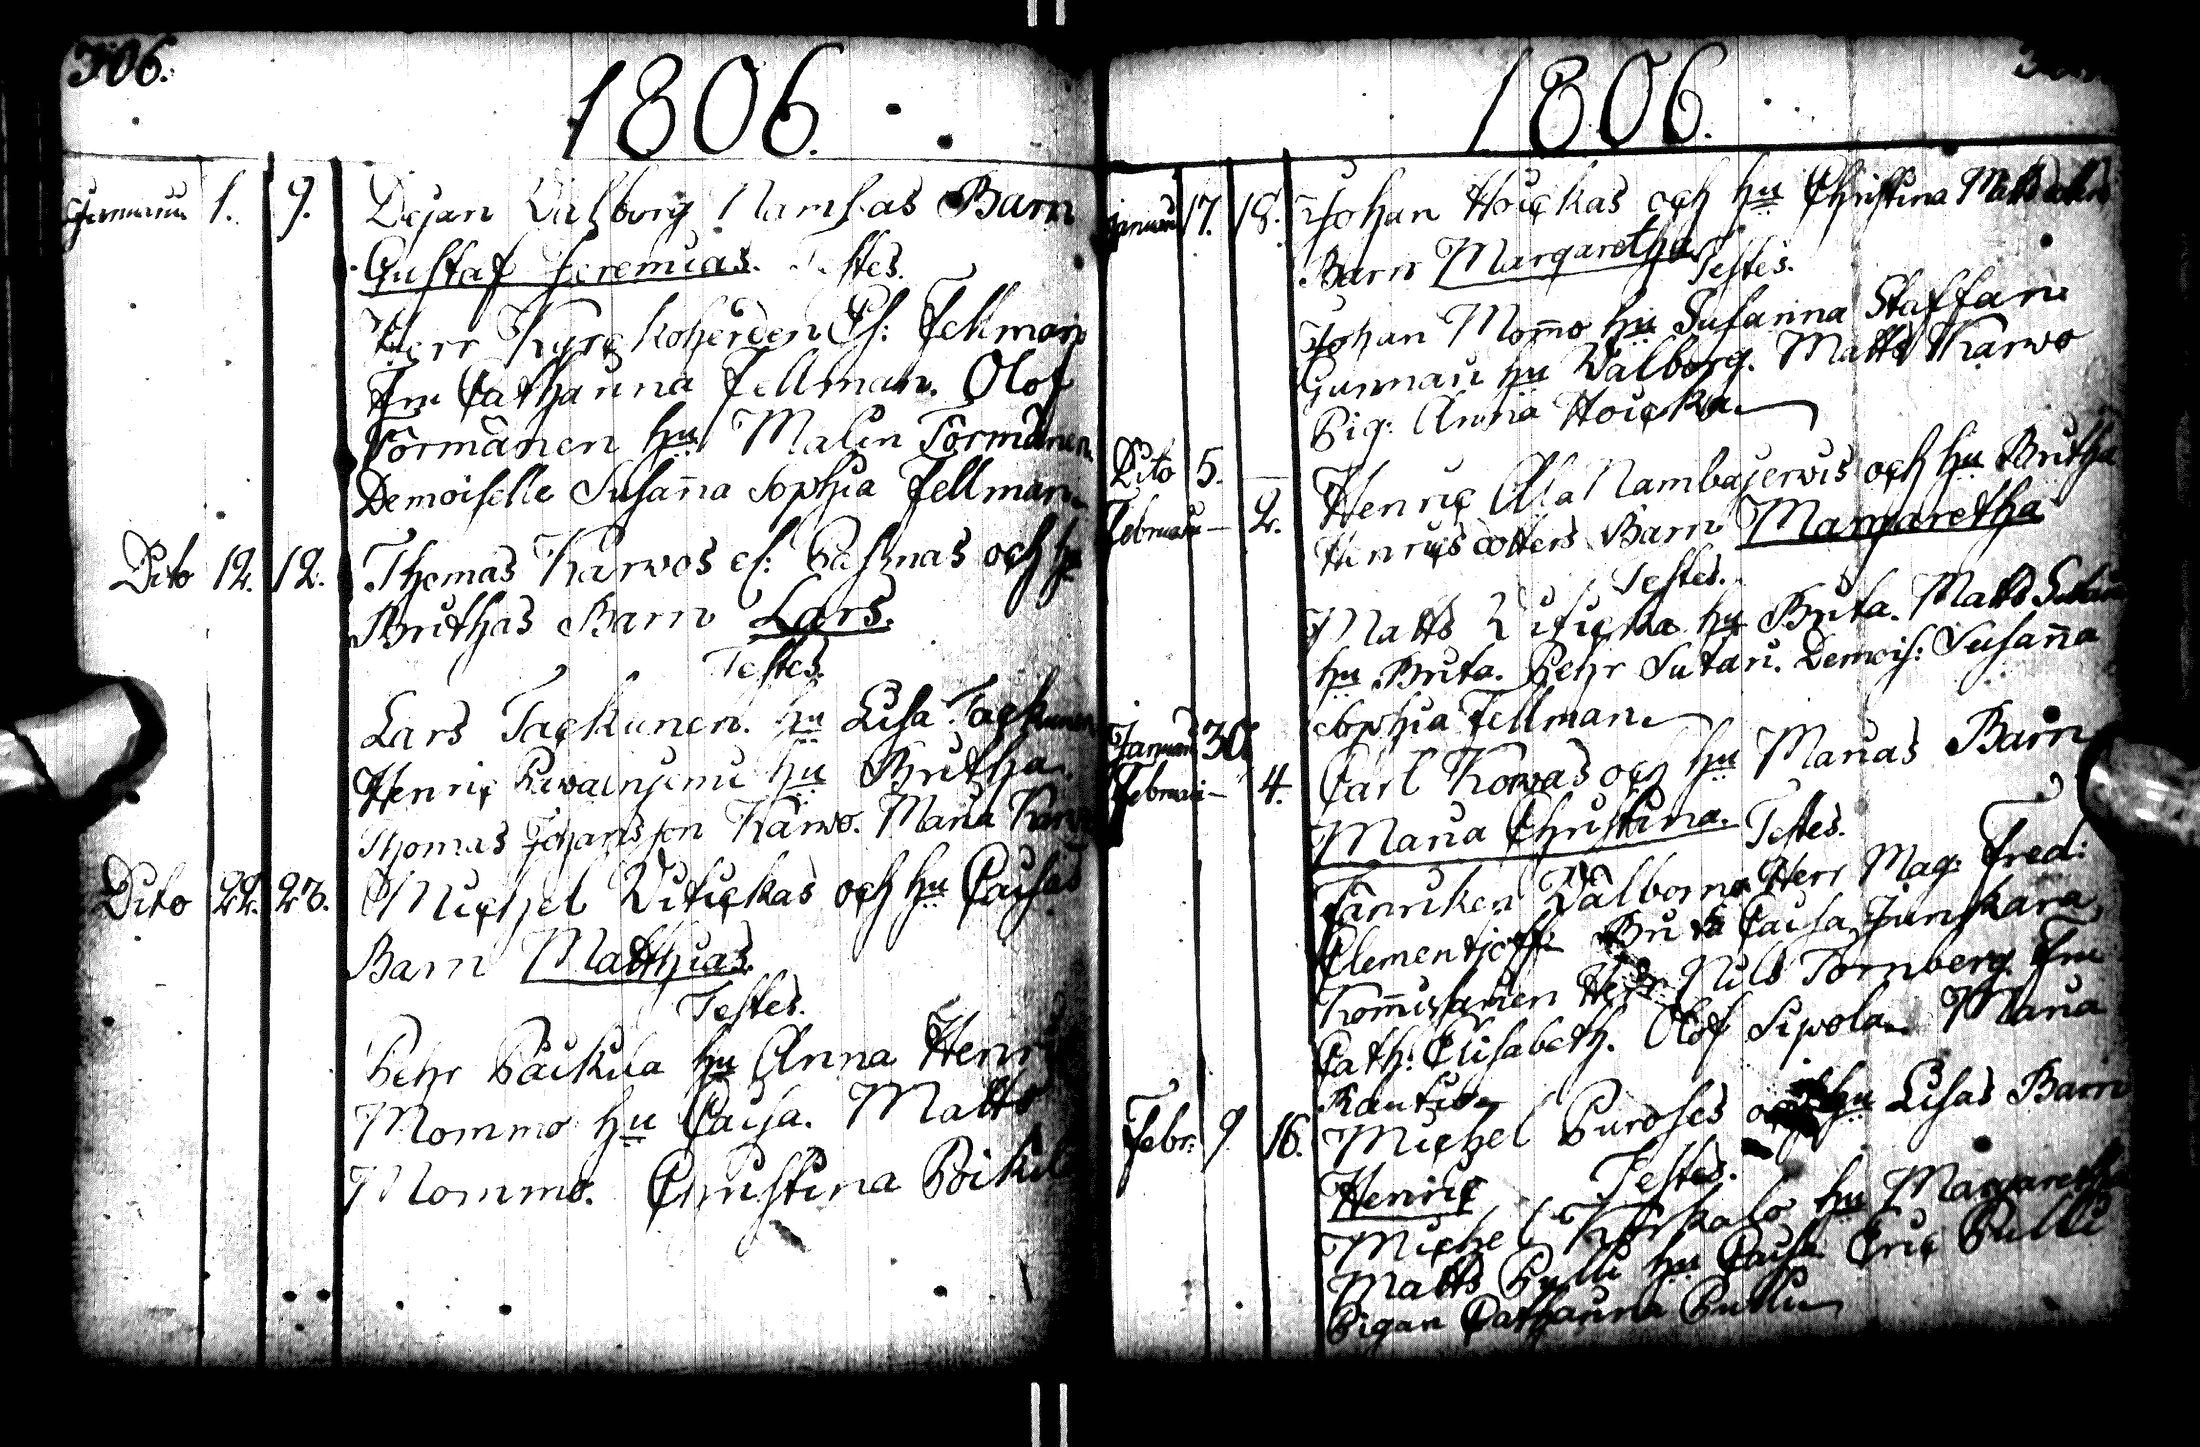 306.
1806.
Januarii 1. 9. Pigan Walborg Nambas Barn
Gustaf Jeremias. Testes.
Herr Kyrckoherden Es: Fellman
Fru Catharina Fellman. Olof
Törmänen hu Malin Törmänen
Demoiselle Susanna Sophia Fellman
Dito 12. 12. Thomas Karwos el: och hu
Brithas Barn Lars.
Testes.
Lars Tackunen. hu Lisa Tackunen
Henric hu Britha.
Thomas Johansson Karwo. Maria Karwo
Dito 22. 23. Michel Witickas och hu Caisas
Barn Matthias.
Testes.
Pehr Päickila hu Anna Henric
Mommo hu Caisa. Matts
Mommo. Christina
1806.
Januarii 17. 18. Johan Houckas och hu Christina Mattsdotters
Barn Margaretha Testes.
Johan Mommo hu Susanna Staffan
Gunnari hu Walborg. Matts Karwo
Pig: Anna Houcka
Dito 5. Henric Ala Nambajerwis och hu Britha
Februarii 2. Henricsdotters Barn Margaretha
Testes.
Matts Witicka hu Brita. Matts Sutari
hu Brita. Pehr Sutari. Demois: Susanna
Sophia Fellman
Januarii 30.
Februarii 4. Carl Korwas och hu Marias Barn
Maria Christina. Testes.
Fänriken Herr Mag: Fred:
Clementjeff Brita Caisa Junskära
Kommissarien Herr Nils Tornberg. Fru
Cath: Elisabeth. Olof Sipola Maria
Rautio
Febr: 9. 16. Michel Puroses och hu Lisas Barn
Henric Testes.
Michel Korkalo hu Margaretha
Matts Pulli hu Caisa Eric Pulli
Pigan Catharina Pulli